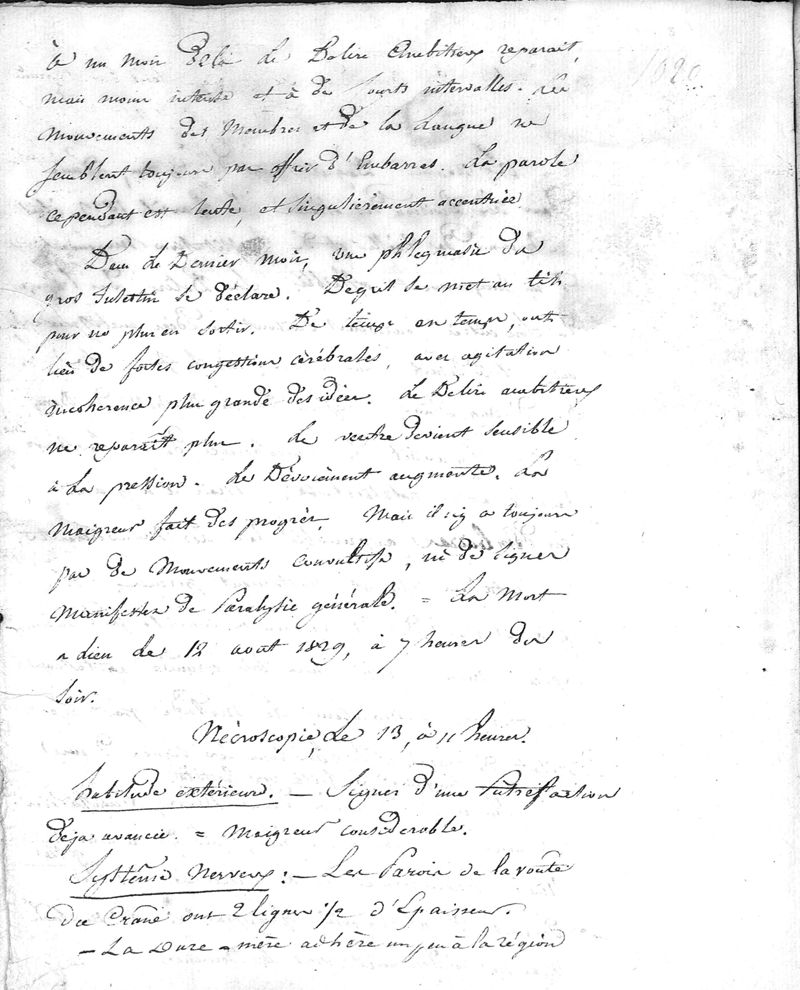 à un mois De là le Delire ambitieux reparait,
mais moins intense et à de courts intervalles. Les
mouvements des Membres et De la Langue ne
semblent toujours pas offrir d'Embarras. La parole
cependant est lente, et singulièrement accentuée
Dans le Dernier mois, une phlegmasie du
gros Intestin se déclare. Degris se met au lit
pour ne plus en sortir. De temps en temps, ont
lieu de fortes congestions cérébrales, avec agitation
incohérence plus grande des idées. Le Delire ambitieux
ne reparaît plus. Le ventre devient sensible
à La pression. Le Dévoiement augmente. La
Maigreur fait des progrès. Mais il n'y a toujours
pas de Mouvements convulsifs, ni de signes
Manifestes de Paralysie générale. = La Mort
a lieu le 12 août 1829, à 7 heures du
soir.
Nécroscopie, Le 13, à 11 heures.
habitude extérieure. — Signes d'une Putréfaction
déja avancée. = Maigreur considerable.
Système Nerveux : — Les Parois de la voute
du Crâne ont 2 lignes 1/2 d'Epaisseur.
— La Dure-mère adhère un peu à la région